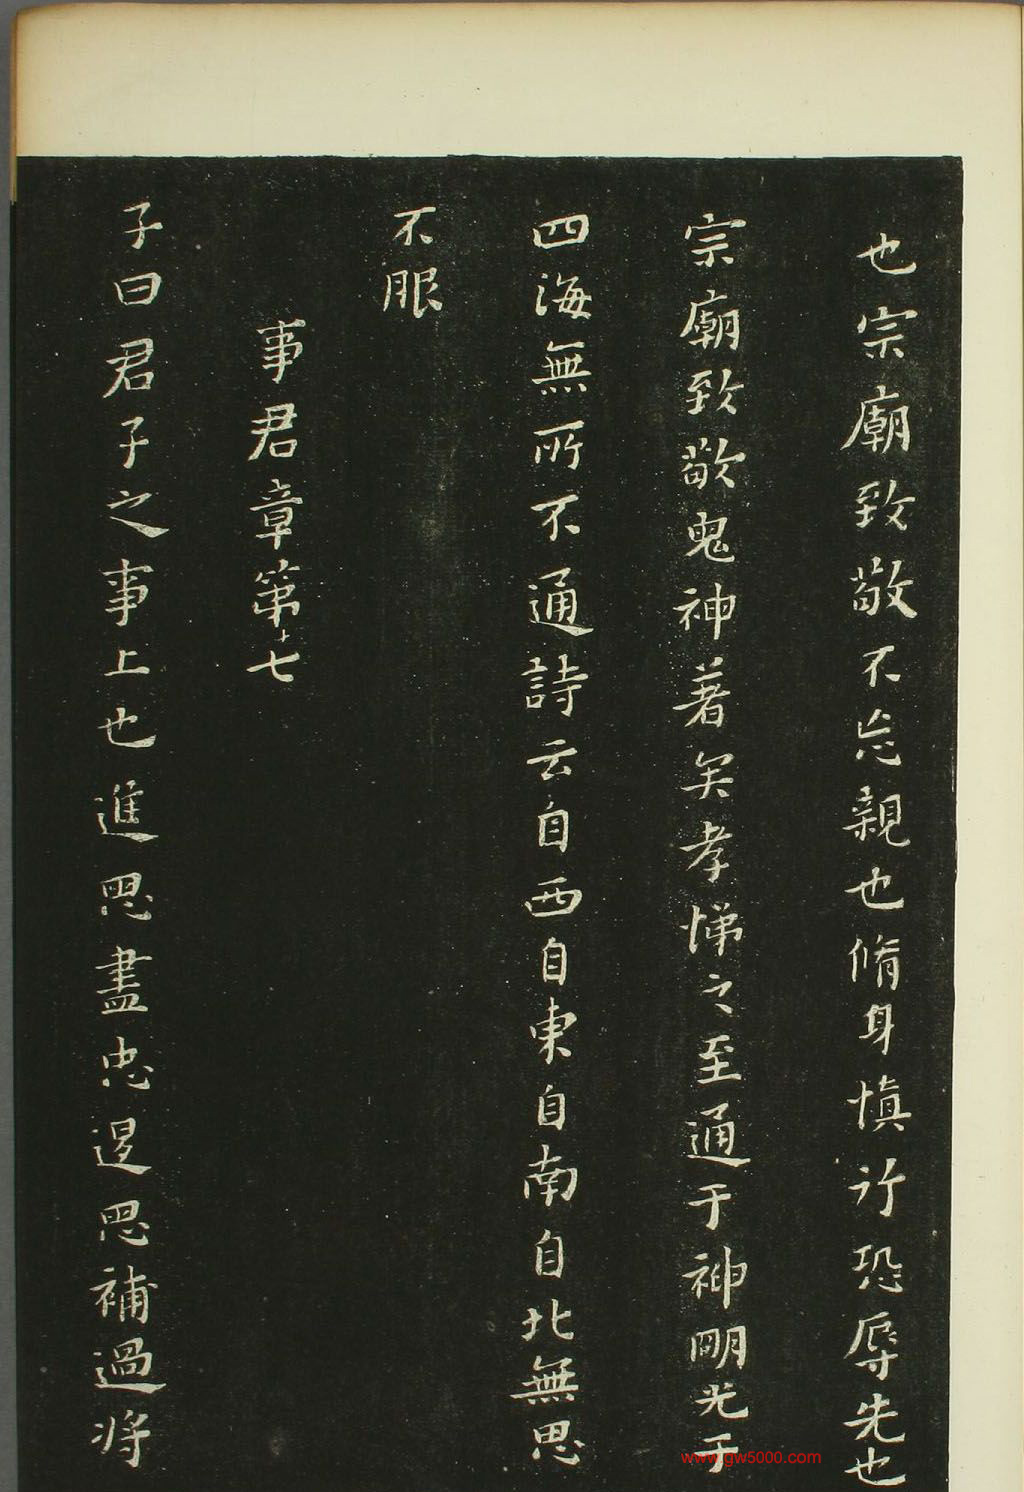 也宗廟致敬不忘親也脩身慎行恐辱先也
宗廟致敬鬼神著矣孝悌之至通于神明光于
四海無所不通詩云自西自東自南自北無思
不服
事君章第十七
子曰君子之事上也進思盡忠退思補過将
www.gw5000.com